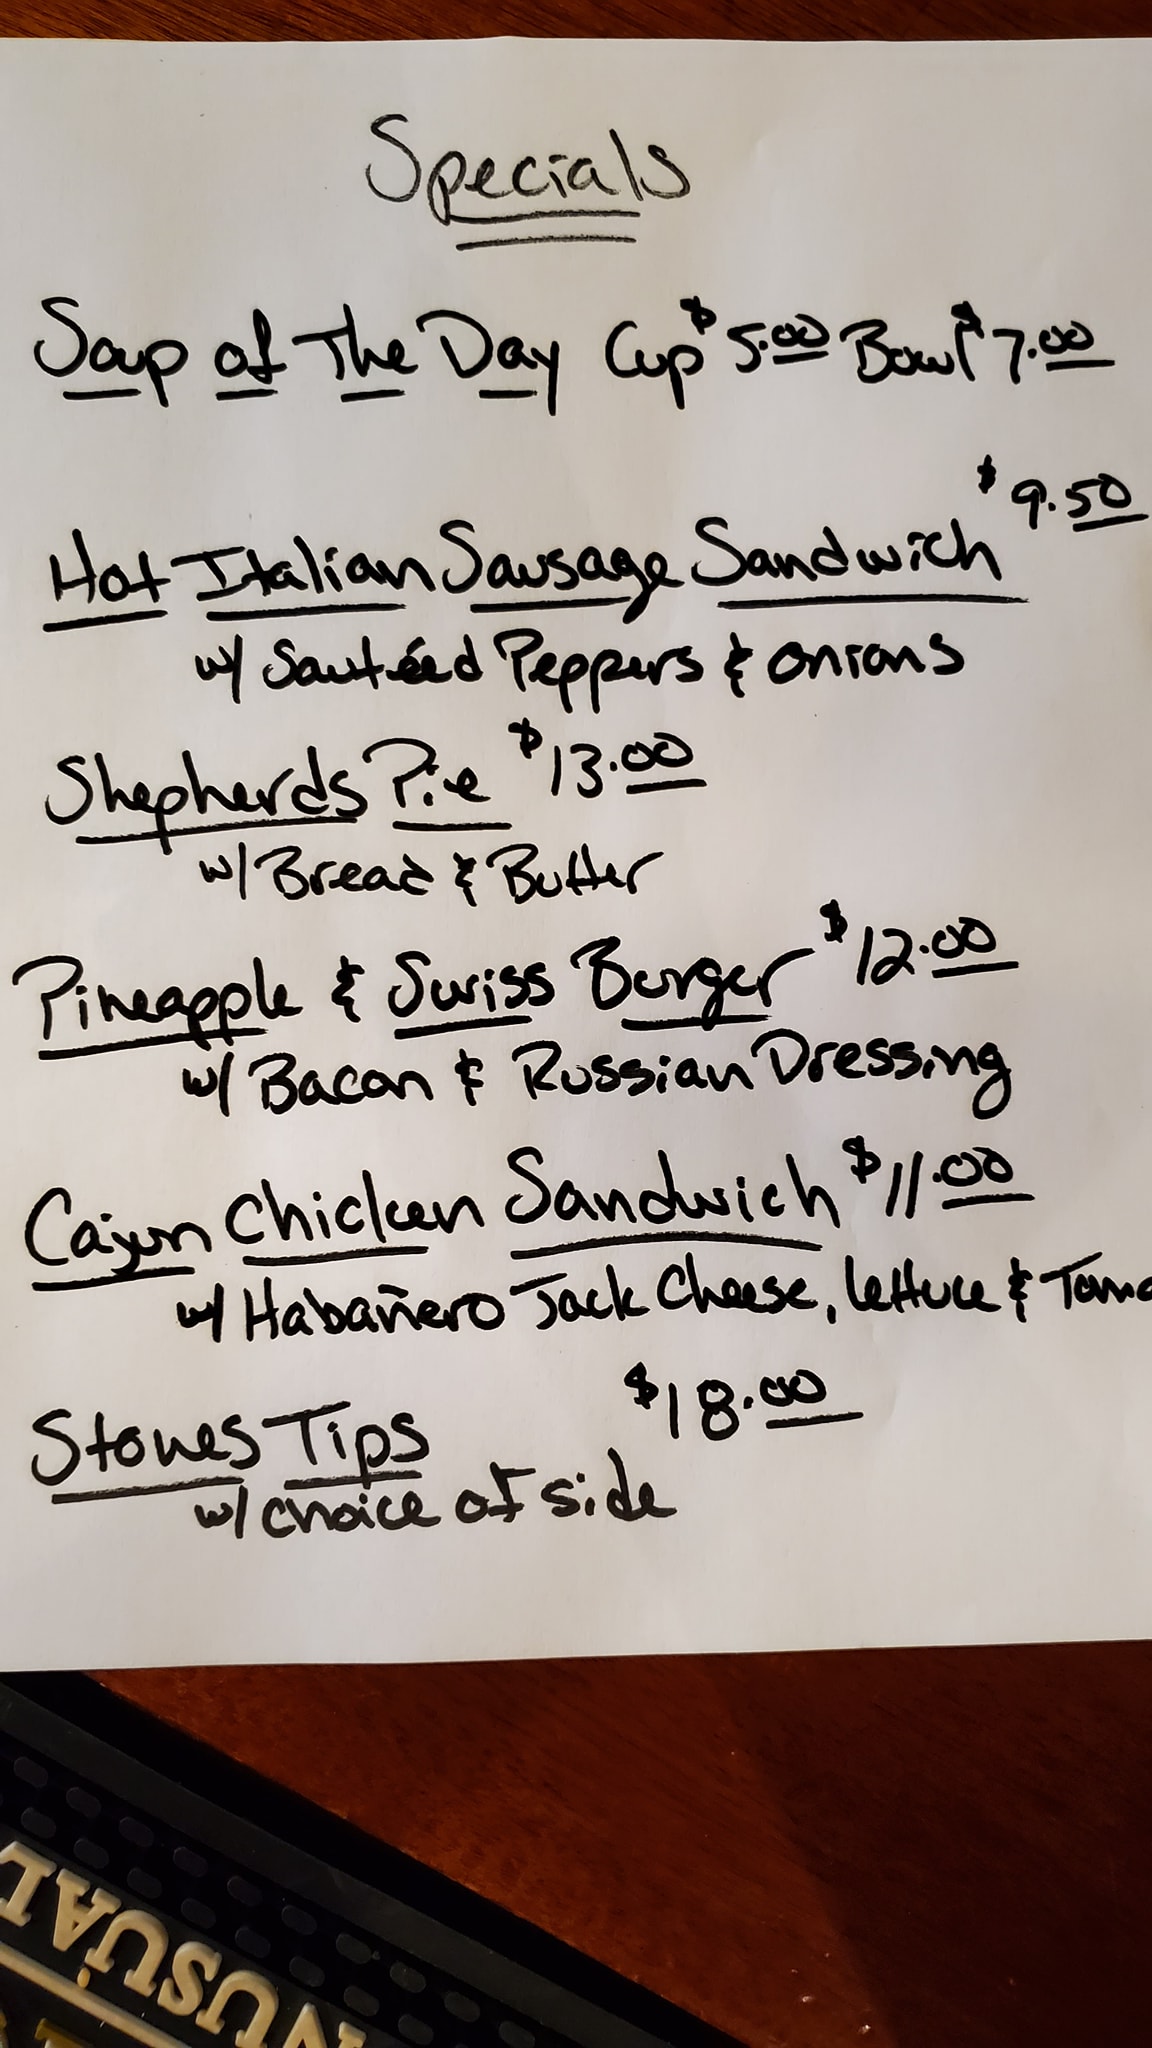 Specials
Soup of The Day Cup $5.00 Bowl $7.00
$9.50
Hot Italian Sausage Sandwich
w/ Sautéed Peppers & onions
Shepherds Pie $13.00
w/ Bread & Butter
Pineapple & Swiss Burger $12.00
w/ Bacon & Russian Dressing
Cajun Chicken Sandwich $11.00
w/ Habañero Jack Cheese, lettuce & Toma
Stones Tips $18.00
w/ choice of side
NUSUAL